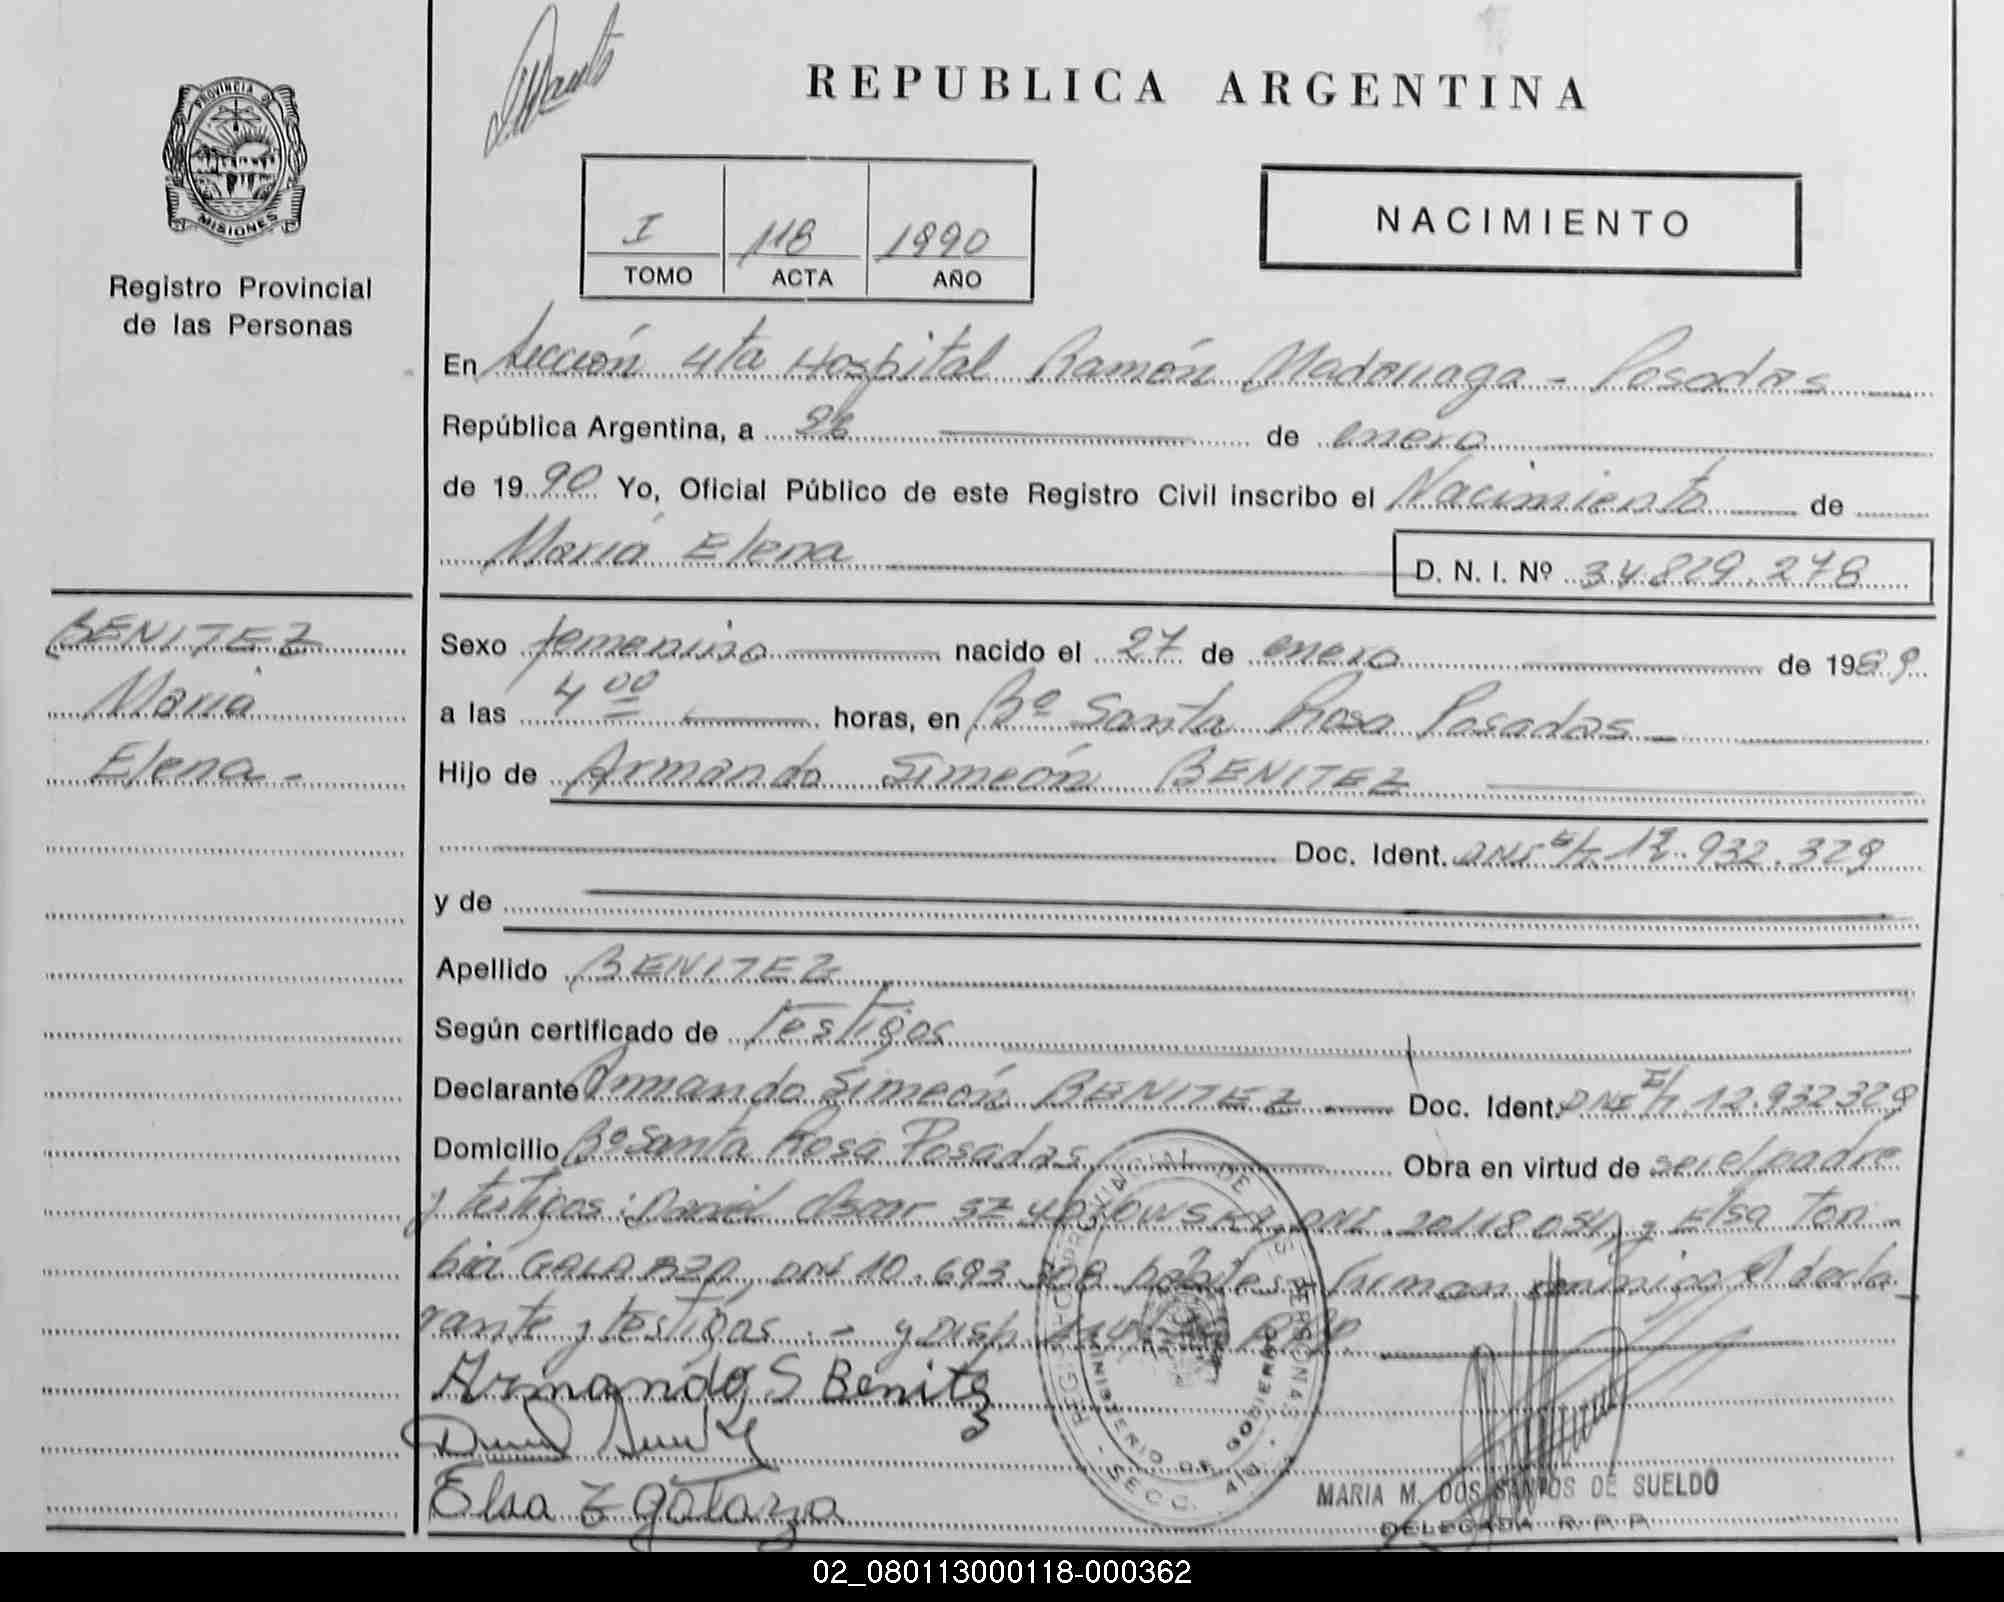 REPUBLICA ARGENTINA
PROVINCIA DE
MISIONES
Registro Provincial
de las Personas
I 118 1990
TOMO ACTA AÑO
NACIMIENTO
En Sección 4ta Hospital Ramón Madariaga - Posadas
República Argentina, a de enero
de 1990 Yo, Oficial Público de este Registro Civil inscribo el Nacimiento de
María Elena D. N. I. Nº 34.829.278
BENITEZ
Maria
Elena -
Sexo femenino nacido el 27 de enero de 1989
a las 4 00 horas, en Bº Santa Rosa Posadas
Hijo de Armando Simeón BENITEZ
Doc. Ident. DNI E/t 12.932.329
y de
Apellido BENITEZ
Según certificado de Testigos
Declarante Armando Simeón BENITEZ Doc. Ident. DNI E/t 12.932329
Domicilio Bº Santa Rosa Posadas Obra en virtud de ser el padre
y testigos: Daniel Oscar DNI. 20118054 y Elsa
GALARZA, DNI 10.693. hábiles. Firman conmigo el decla
rante y testigos. - y Disp.
Armando S Benitez
Elsa Z galarza
REGISTRO PROVINCIAL DE LAS PERSONAS
MINISTERIO DE GOBIERNO
- SECC. 4ta. -
MARIA M. DOS SANTOS DE SUELDO
DELEGADA R.P.P.
02_080113000118-000362